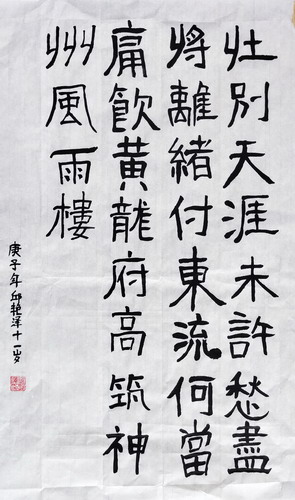 壯別天涯未許愁盡
將離緒付東流何當
痛飲黃龍府高筑神
州風雨樓
庚子年邱艳十一岁